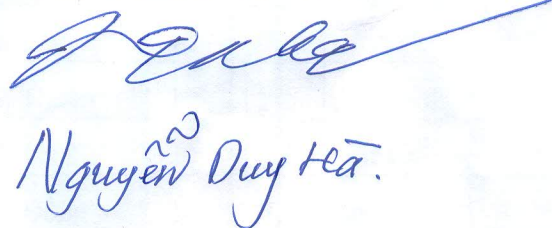 Nguyễn Duy Hà.